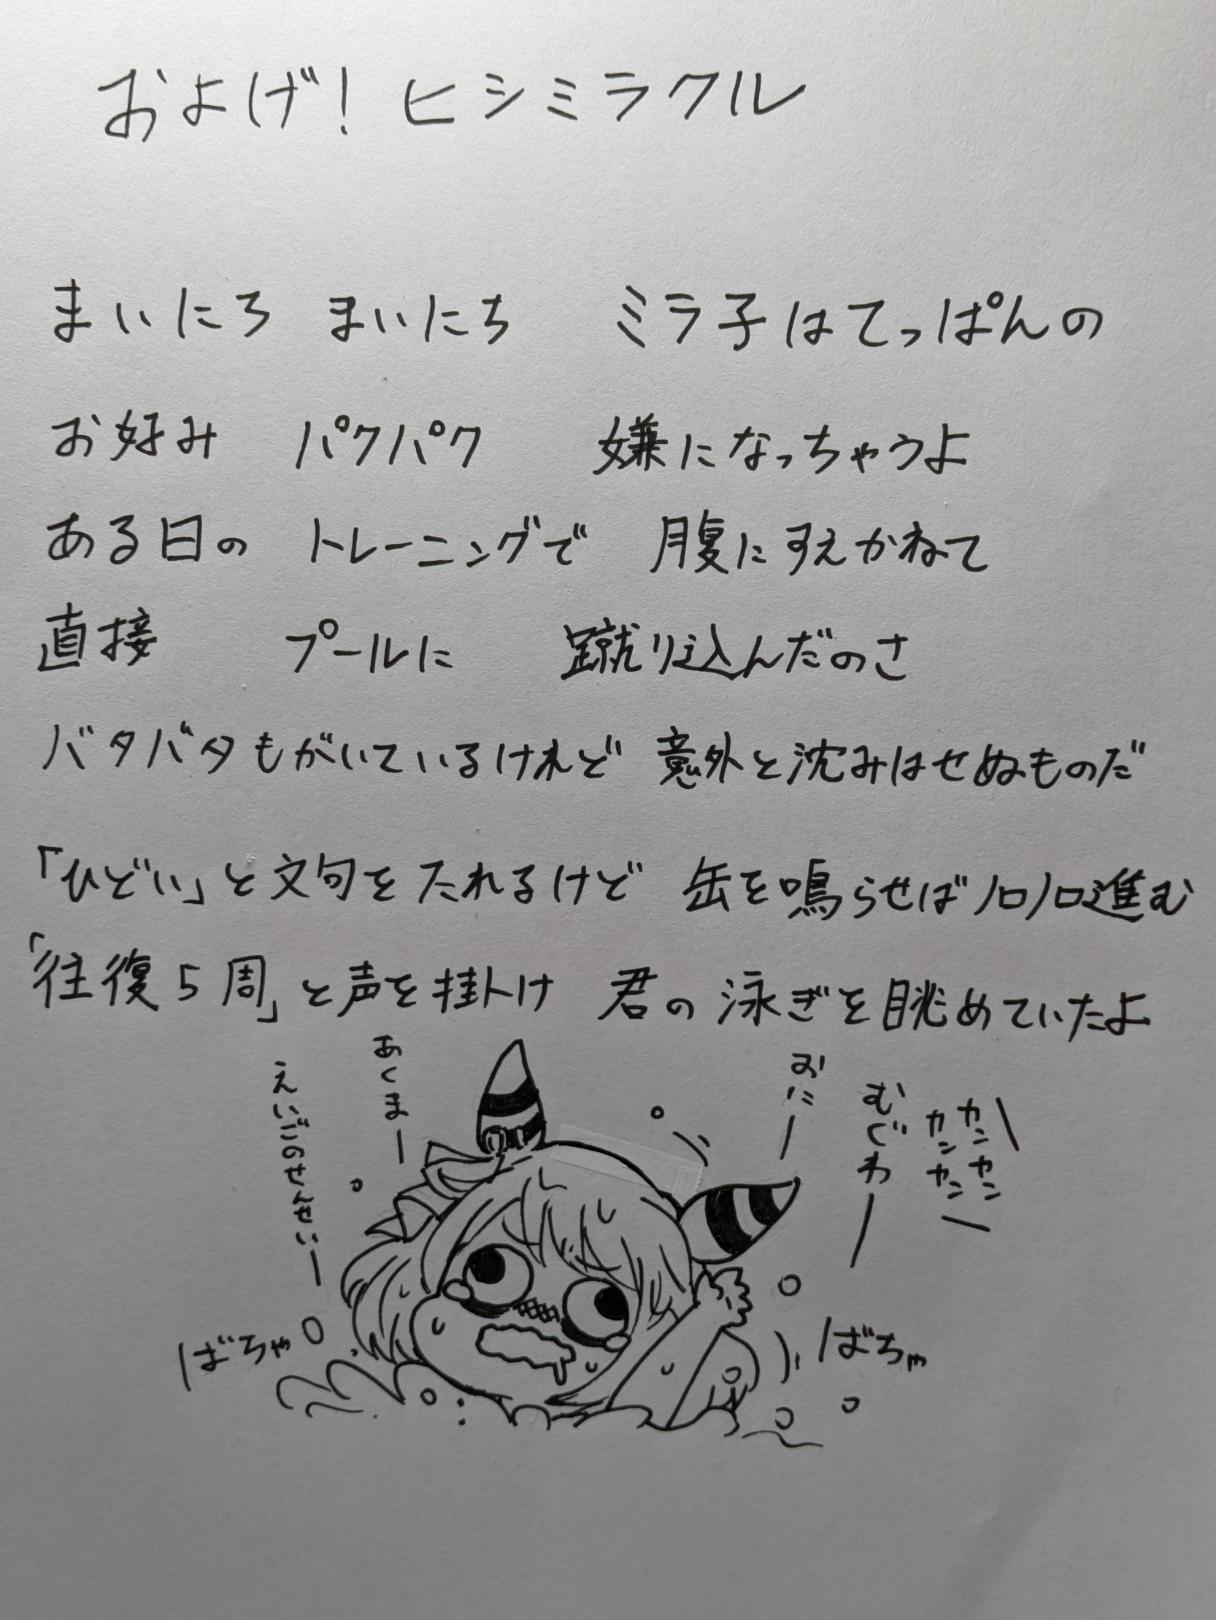 およげ！ヒシミラクル
まいにち まいにち ミラ子はてっぱんの
お好み パクパク 嫌になっちゃうよ
ある日の トレーニングで 腹にすえかねて
直接 プールに 蹴り込んだのさ
バタバタもがいているけれど 意外と沈みはせぬものだ
「ひどい」と文句をたれるけど 缶を鳴らせばノロノロ進む
「往復5周」と声を掛け 君の泳ぎを眺めていたよ
カンカン
カンカン
むぐわー
おにー
あくまー
えいごのせんせいー
ばちゃ
ばちゃ